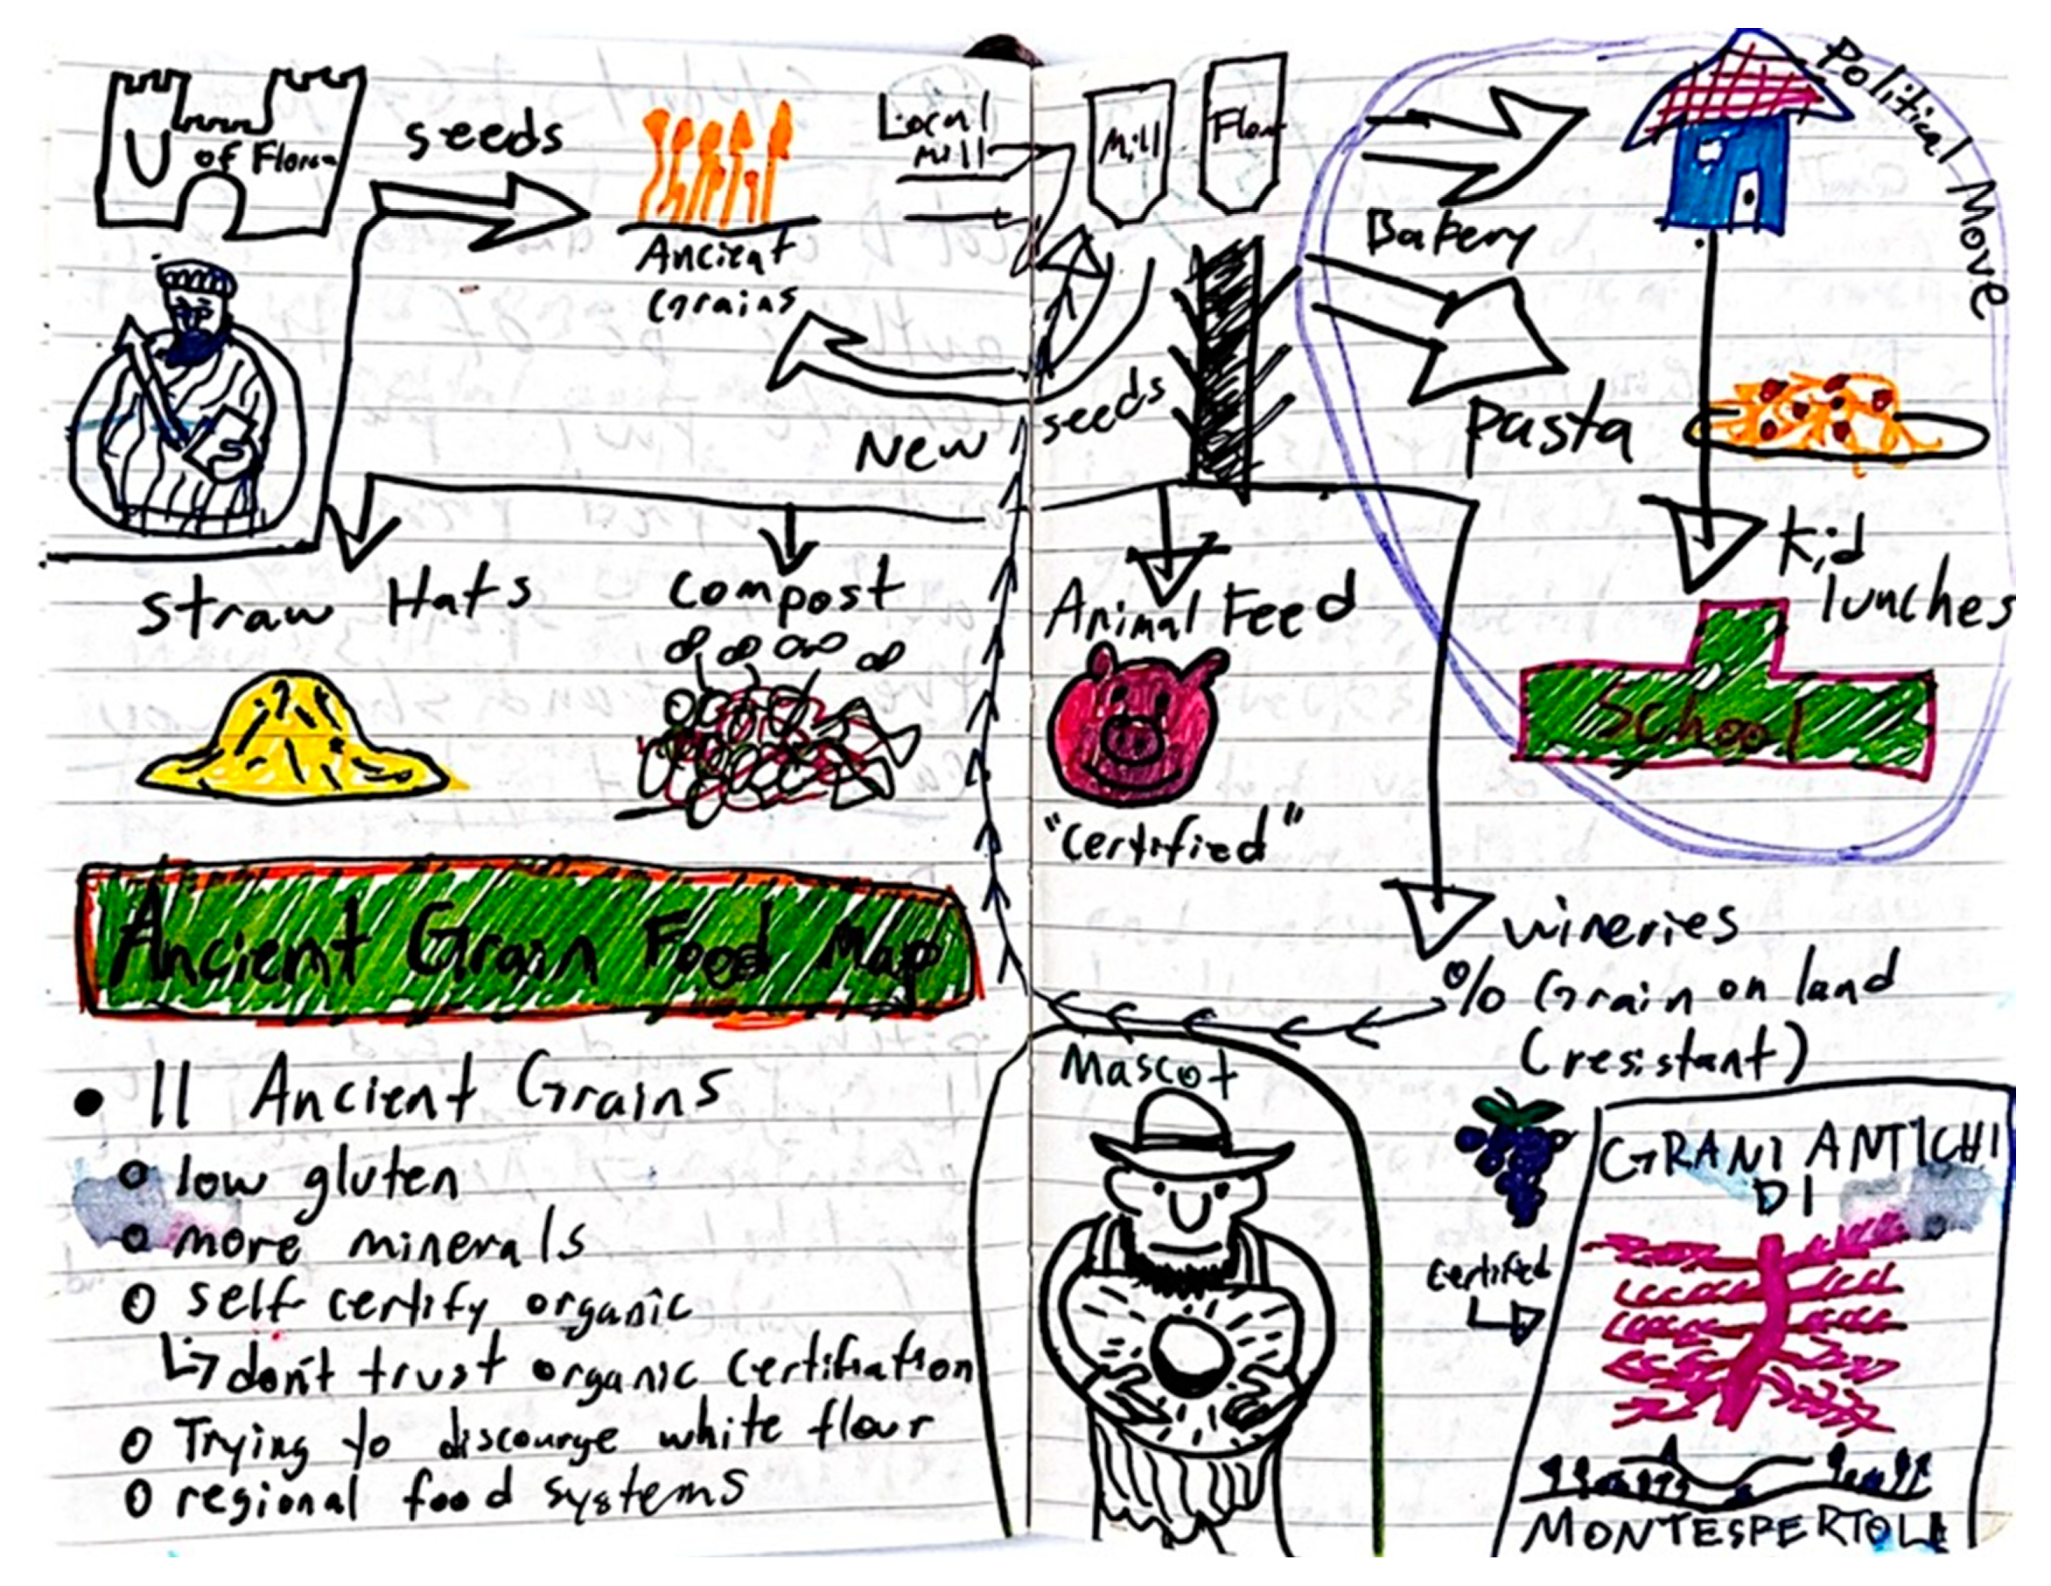 U of Floren
seeds
Ancient
Grains
Local
mill
Mill
Flour
Bakery
Political Move
New seeds
pasta
kid
lunches
School
straw Hats
compost
Animal Feed
"certified"
wineries
% Grain on land
(resistant)
Ancient Grain Food Map
• 11 Ancient Grains
o low gluten
o more minerals
o self certify organic
↳ don't trust organic certifiation
o Trying to discourge white flour
o regional food systems
Mascot
certified
GRANI ANTICHI
DI
MONTESPERTOLI